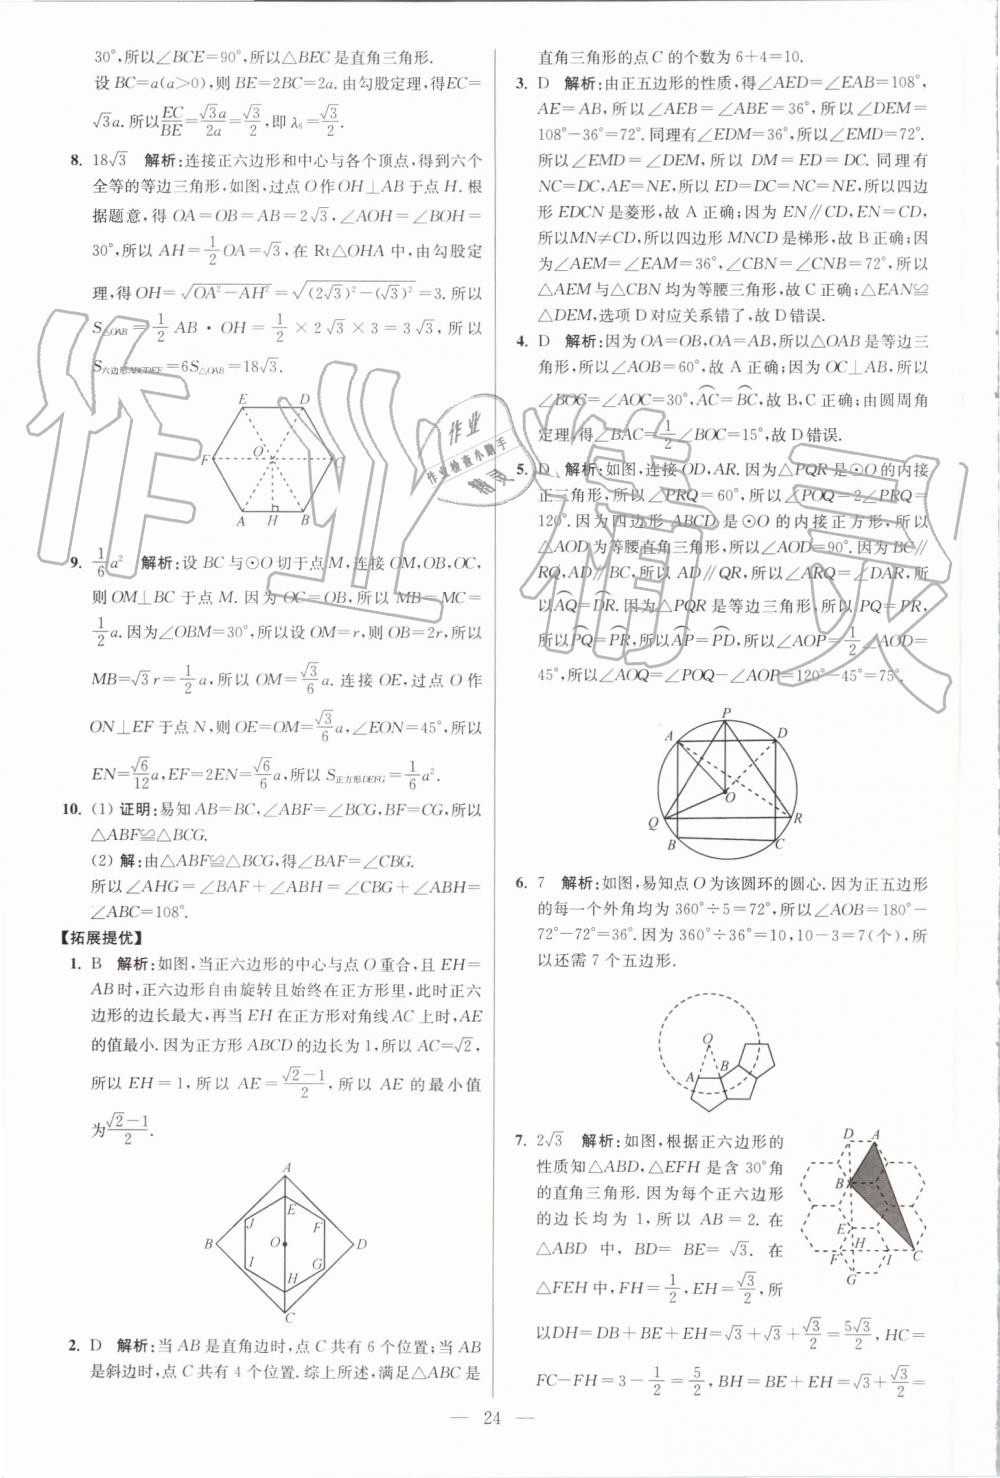 30°,所以∠BCE=90°,所以△BEC是直角三角形.
设BC=a(a>0),则BE=2BC=2a.由勾股定理,得EC=
√3a.所以EC/BE=√3a/2a=√3/2,即λ₆=√3/2.
8. 18√3 解析:连接正六边形和中心与各个顶点,得到六个
全等的等边三角形,如图,过点O作OH⊥AB于点H.根
据题意,得OA=OB=AB=2√3,∠AOH=∠BOH=
30°,所以AH=1/2OA=√3,在Rt△OHA中,由勾股定
理,得OH=√(OA²-AH²)=√((2√3)²-(√3)²)=3.所以
S△OAB=1/2 AB·OH=1/2×2√3×3=3√3,所以
S六边形ABCDEF=6S△OAB=18√3.
E D
F O C
A H B
9. 1/6a² 解析:设BC与⊙O切于点M,连接OM,OB,OC,
则OM⊥BC于点M.因为OC=OB,所以MB=MC=
1/2a.因为∠OBM=30°,所以设OM=r,则OB=2r,所以
MB=√3r=1/2a,所以OM=√3/6a.连接OE,过点O作
ON⊥EF于点N,则OE=OM=√3/6a,∠EON=45°,所以
EN=√6/12a,EF=2EN=√6/6a,所以S正方形DEFG=1/6a².
10. (1) 证明:易知AB=BC,∠ABF=∠BCG,BF=CG,所以
△ABF≌△BCG.
(2) 解:由△ABF≌△BCG,得∠BAF=∠CBG.
所以∠AHG=∠BAF+∠ABH=∠CBG+∠ABH=
∠ABC=108°.
【拓展提优】
1. B 解析:如图,当正六边形的中心与点O重合,且EH=
AB时,正六边形自由旋转且始终在正方形里,此时正六
边形的边长最大,再当EH在正方形对角线AC上时,AE
的值最小.因为正方形ABCD的边长为1,所以AC=√2,
所以EH=1,所以AE=(√2-1)/2,所以AE的最小值
为(√2-1)/2.
A
J E F
B O D
I H G
C
2. D 解析:当AB是直角边时,点C共有6个位置;当AB
是斜边时,点C共有4个位置.综上所述,满足△ABC是
直角三角形的点C的个数为6+4=10.
3. D 解析:由正五边形的性质,得∠AED=∠EAB=108°,
AE=AB,所以∠AEB=∠ABE=36°,所以∠DEM=
108°-36°=72°.同理有∠EDM=36°,所以∠EMD=72°.
所以∠EMD=∠DEM,所以DM=ED=DC.同理有
NC=DC,AE=NE,所以ED=DC=NC=NE,所以四边
形EDCN是菱形,故A正确;因为EN∥CD,EN=CD,
所以MN≠CD,所以四边形MNCD是梯形,故B正确;因
为∠AEM=∠EAM=36°,∠CBN=∠CNB=72°,所以
△AEM与△CBN均为等腰三角形,故C正确;△EAN≌
△DEM,选项D对应关系错了,故D错误.
4. D 解析:因为OA=OB,OA=AB,所以△OAB是等边三
角形,所以∠AOB=60°,故A正确;因为OC⊥AB,所以
∠BOC=∠AOC=30°,AC⌒=BC⌒,故B,C正确;由圆周角
定理,得∠BAC=1/2∠BOC=15°,故D错误.
5. D 解析:如图,连接OD,AR.因为△PQR是⊙O的内接
正三角形,所以∠PRQ=60°,所以∠POQ=2∠PRQ=
120°.因为四边形ABCD是⊙O的内接正方形,所以
△AOD为等腰直角三角形,所以∠AOD=90°.因为BC∥
RQ,AD∥BC,所以AD∥QR,所以∠ARQ=∠DAR,所
以AQ⌒=DR⌒.因为△PQR是等边三角形,所以PQ=PR,
所以PQ⌒=PR⌒,所以AP⌒=PD⌒,所以∠AOP=1/2∠AOD=
45°,所以∠AOQ=∠POQ-∠AOP=120°-45°=75°.
P
A D
O
Q R
B C
6. 7 解析:如图,易知点O为该圆环的圆心.因为正五边形
的每一个外角均为360°÷5=72°,所以∠AOB=180°-
72°-72°=36°.因为360°÷36°=10,10-3=7(个),所
以还需7个五边形.
O
A B
7. 2√3 解析:如图,根据正六边形的
性质知△ABD,△EFH是含30°角
的直角三角形.因为每个正六边形
的边长均为1,所以AB=2.在
△ABD中,BD=BE=√3.在
△FEH中,FH=1/2,EH=√3/2,所
以DH=DB+BE+EH=√3+√3+√3/2=5√3/2,HC=
FC-FH=3-1/2=5/2,BH=BE+EH=√3+√3/2=
D A
B
E
F H I C
G
— 24 —
作业精灵
作业
作业检查小助手
精灵